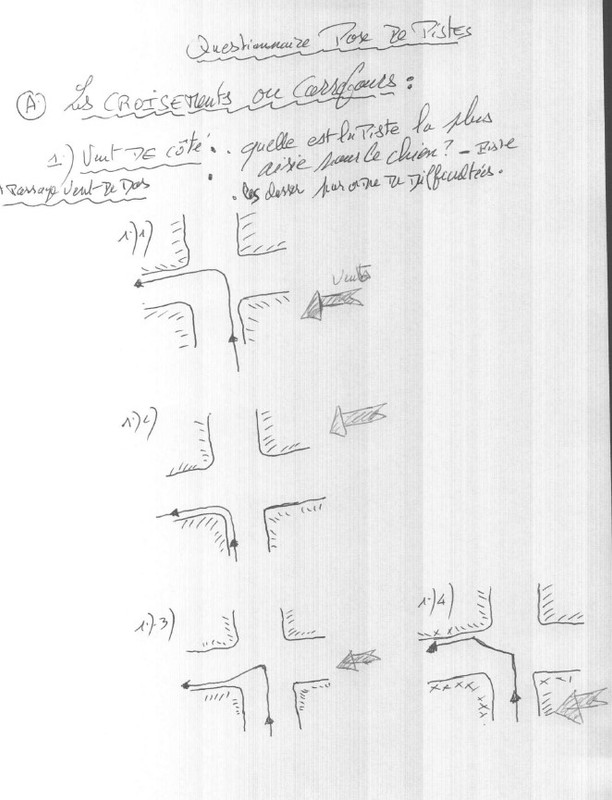 Questionnaire Pose De Pistes
A) Les CROISEMENTS ou Carrefours :
1.) Vent DE côté : . . quelle est la Piste la plus
aisée pour le chien ? –
Passage Vent De Dos
. les classer par ordre De Difficultées.
1.)1)
Vent
1.)2)
1.)3)
1.)4)